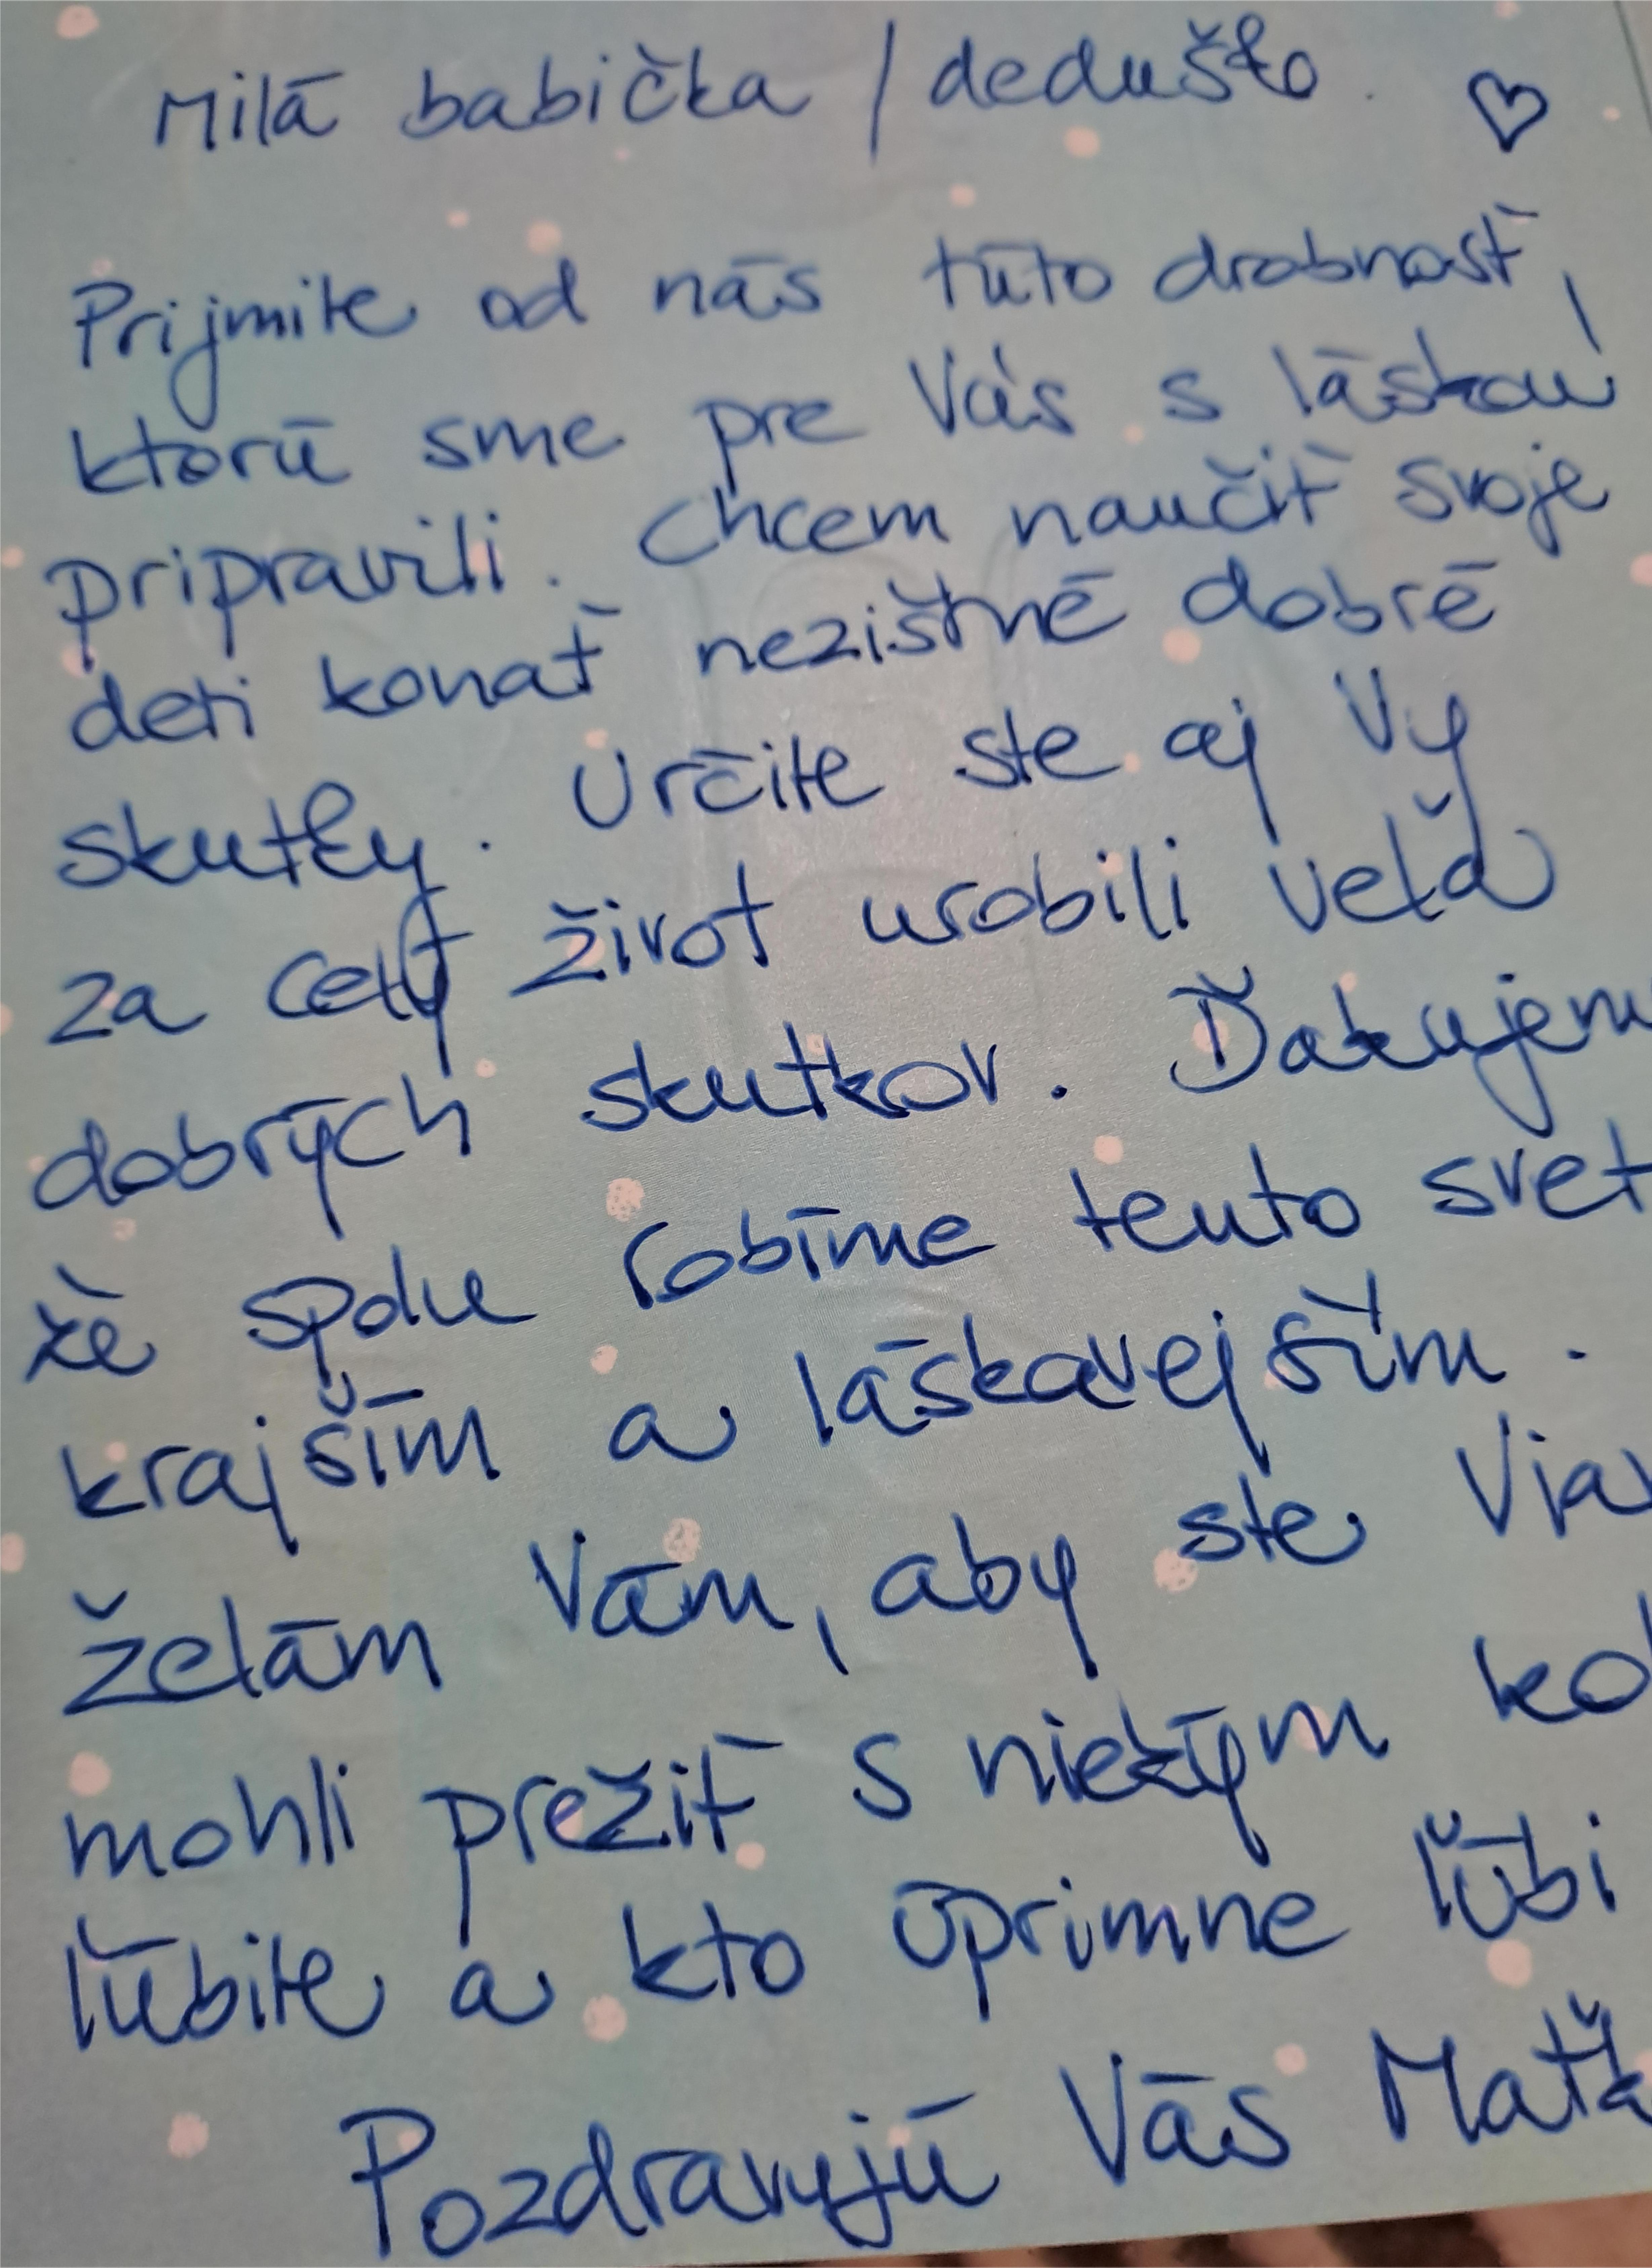 Milá babička / deduško ♡
Prijmite od nás túto drobnosť,
ktorú sme pre Vás s láskou
pripravili. Chcem naučiť svoje
deti konať nezištné dobré
skutky. Určite ste aj Vy
za celý život urobili veľa
dobrých skutkov. Ďakujem
že spolu robíme tento svet
krajším a láskavejším.
Želám Vám, aby ste
mohli prežiť s niekým
ľúbite a kto úprimne ľúbi
Pozdravujú Vás